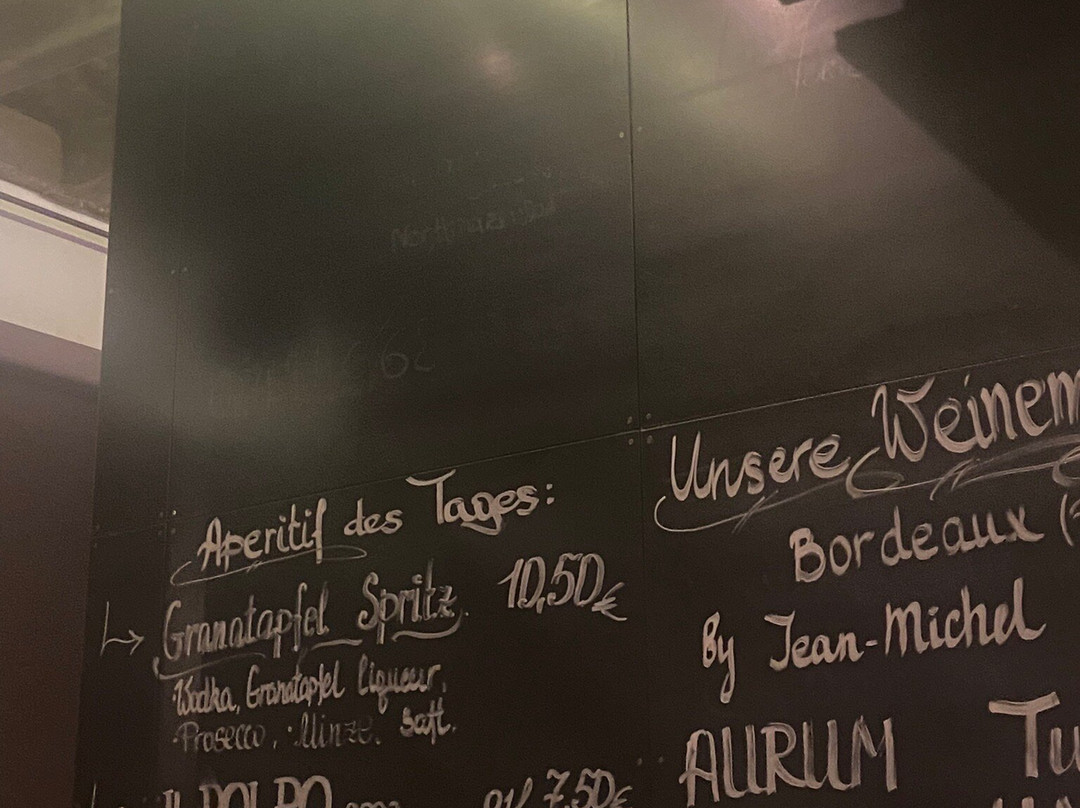 Aperitif des Tages:
Granatapfel Spritz. 10,50€
Wodka, Granatapfel Liqueur,
Prosecco, Minze. Saft.
7,50€
Unsere Weinem
Bordeaux (
By Jean-Michel
AURUM Tu